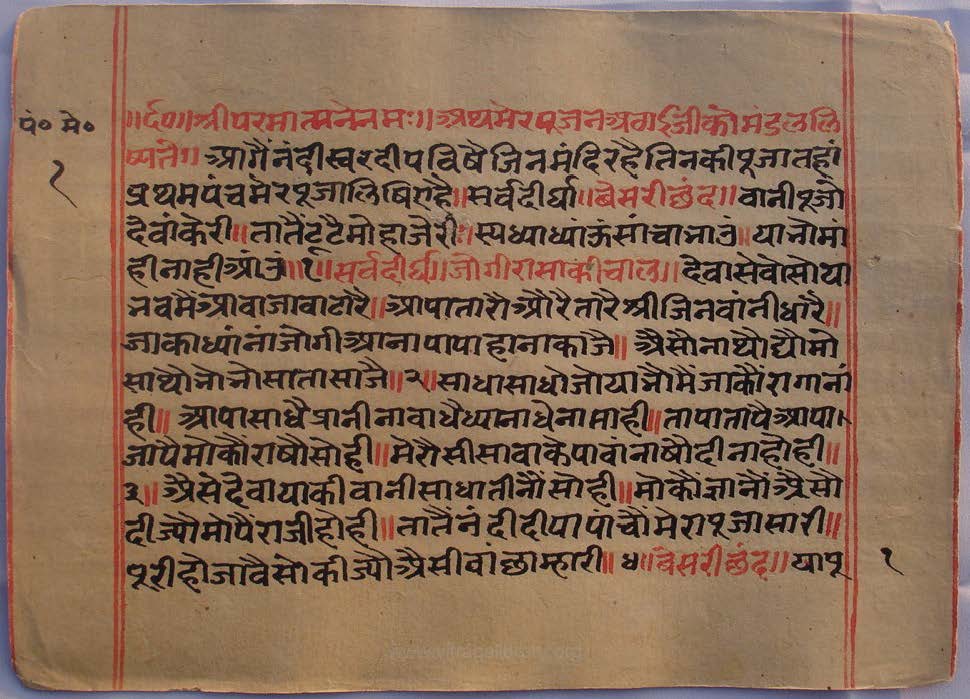 पं० मे०
१
॥र्द०॥श्रीपरमात्मनेनमः॥अथमेरपूजनअवाईजीकोमंडललि
ष्यते॥ आगैंनंदीस्वरदीपविषैजिनमंदिरहैतिनकीपूजातहां
प्रथमपंचमेरपूजालिषिएहै॥सर्वदीर्घा॥बेसरीछंद॥वानीपूजौ
देवांकेरी॥तातैंटूटैमोहाजेरी॥स्यध्याध्यांऊंसांचानाउं॥यानौमां
हीनाहीआंउं॥१॥सर्वदीर्घ॥जोगीरासाकीचाल॥देवासेवोसोया
नवमैंआवाजावाटोरै॥आपातारौऔरैतारैश्रीजिनवांनीधारै॥
जाकाध्यांनांजोगीआनापापाहानाकाजै॥ऐसौनाथौद्यौमो
साथौनोनोसातासाजै॥२॥साधासाधोजोयानौमैंजाकौंरागानां
ही॥आपासाधैप्रानीनावाधैध्यानाधेनामाही॥तापातापैआपा
जापैमोकौंराषौसोही॥मेरौसीसावाकेपावांनाषौदीनाहोही॥
३॥ऐसेदेवायाकीवानीसाधातीनौंसोही॥मोकौंज्ञानौंऐसौ
दीज्यौमोपैराजीहोही॥तातैंनंदीदीपापांचौंमेरापूजासारी॥
पूरीहोजावैसोकीज्यौऐसीवांछाम्हारी॥४॥बेसरीछंद॥यापू
१